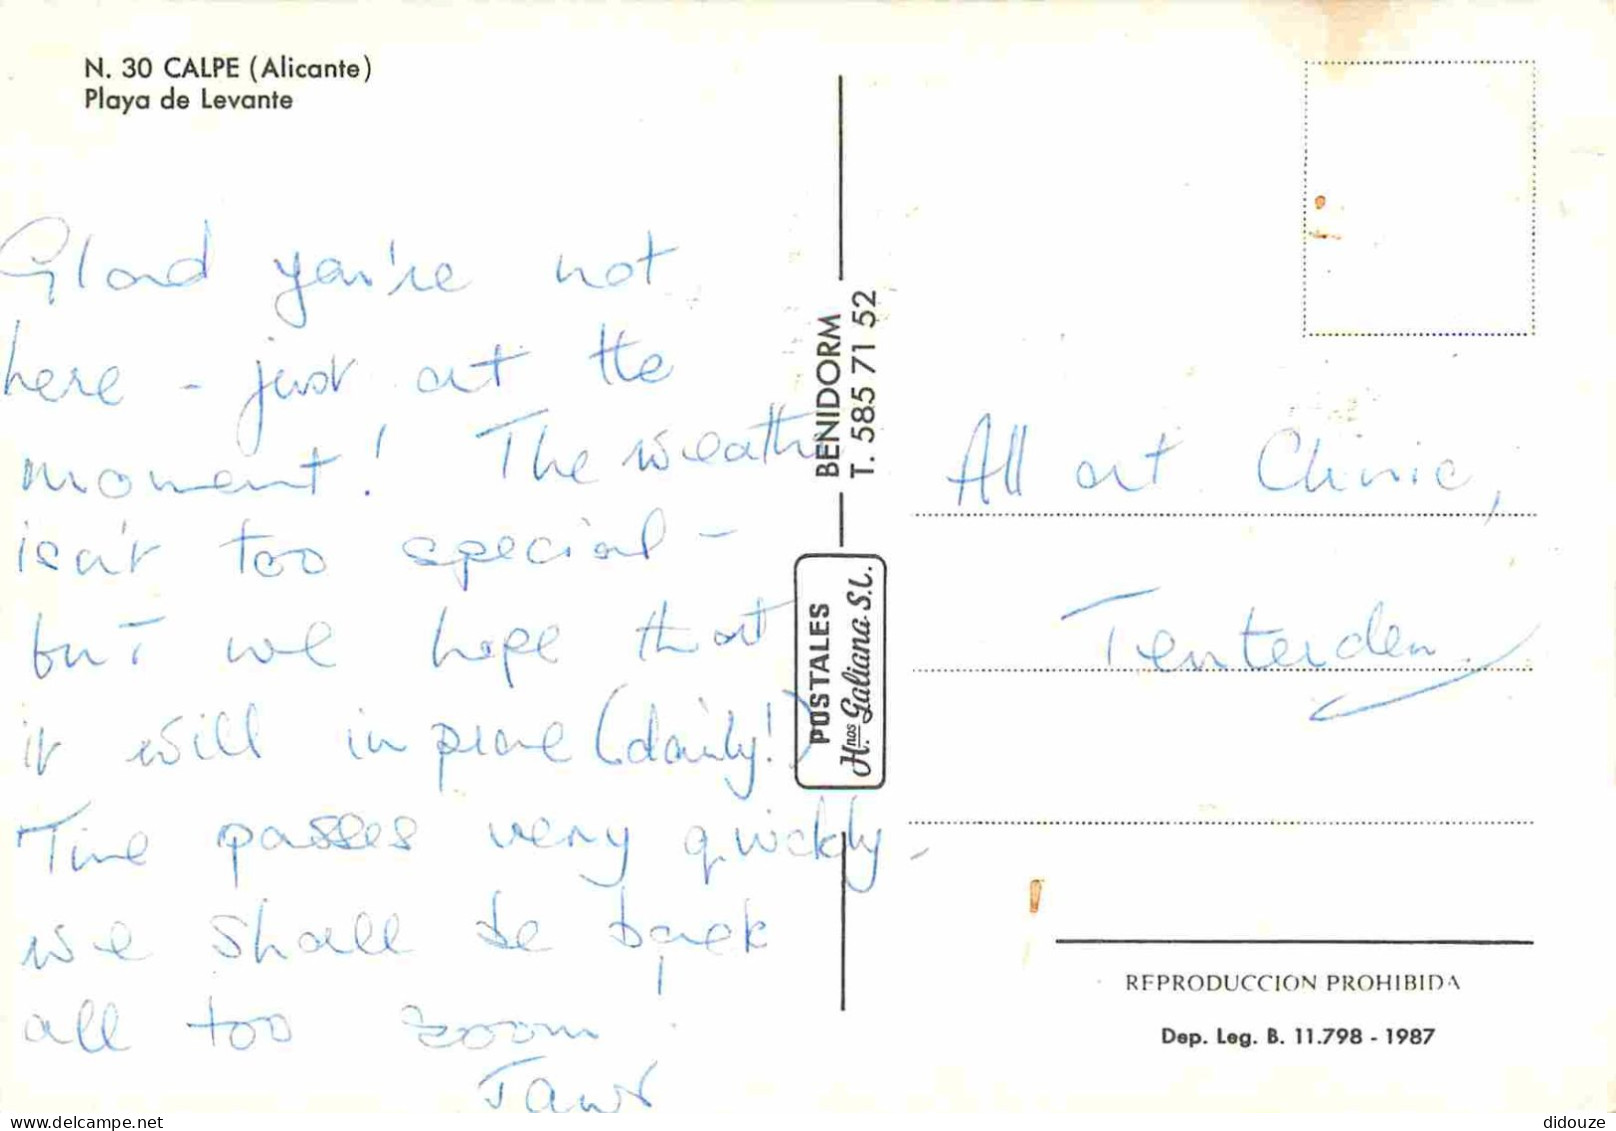 N. 30 CALPE (Alicante)
Playa de Levante
Glad you're not
here - just at the
moment! The weather
isn't too special -
but we hope that
it will improve (daily!)
Time passes very quickly -
we shall be back
all too soon!
BENIDORM
T. 585 71 52
POSTALES
H.nos Galiana S.L.
All at Clinic,
Tenterden.
REPRODUCCION PROHIBIDA
Dep. Leg. B. 11.798 - 1987
delcampe.net
didouze